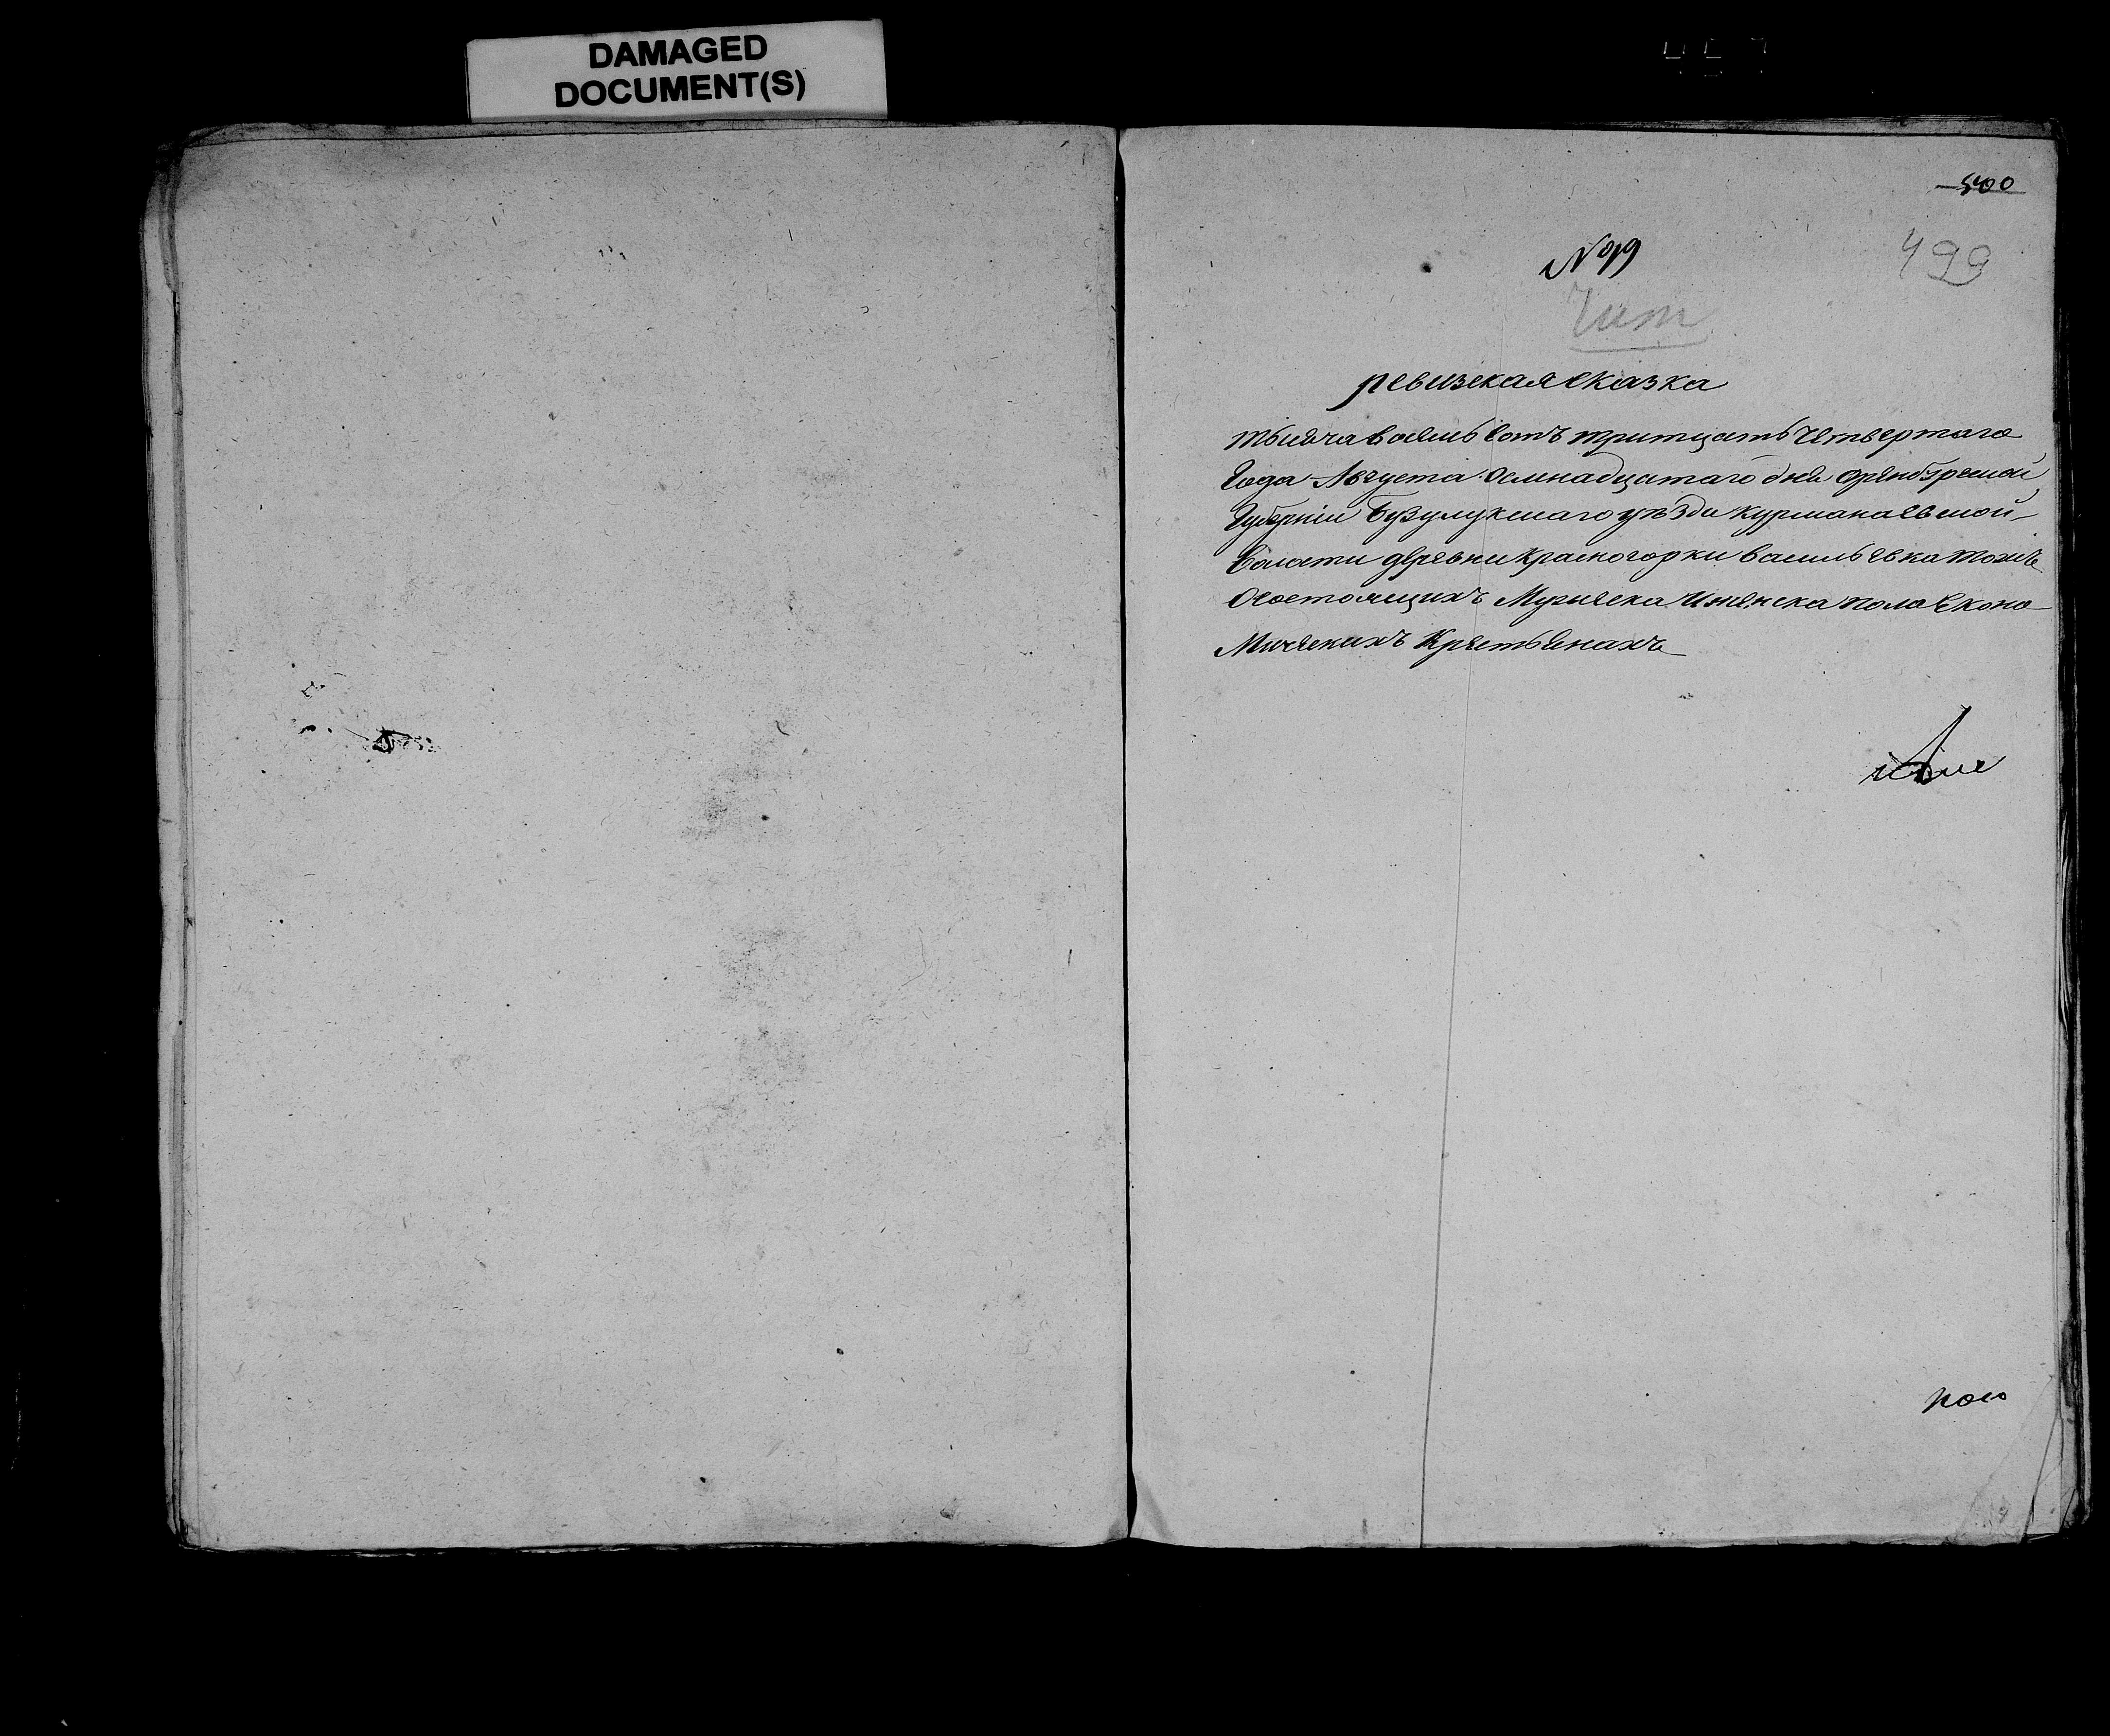 DAMAGED
DOCUMENT(S)
500
№ 99
499
Чит
ревизская сказка
тысяча восемь сотъ тритцать четвертаго
Года Августа осмнадцатаго дня оренбурской
Губерніи Бузулукскаго уѣзда курманаевской
волости деревни красногорки васильевка тожъ
Осостоящихъ Мужеска Иженска пола Еконо
Мическихъ Крестьенахъ